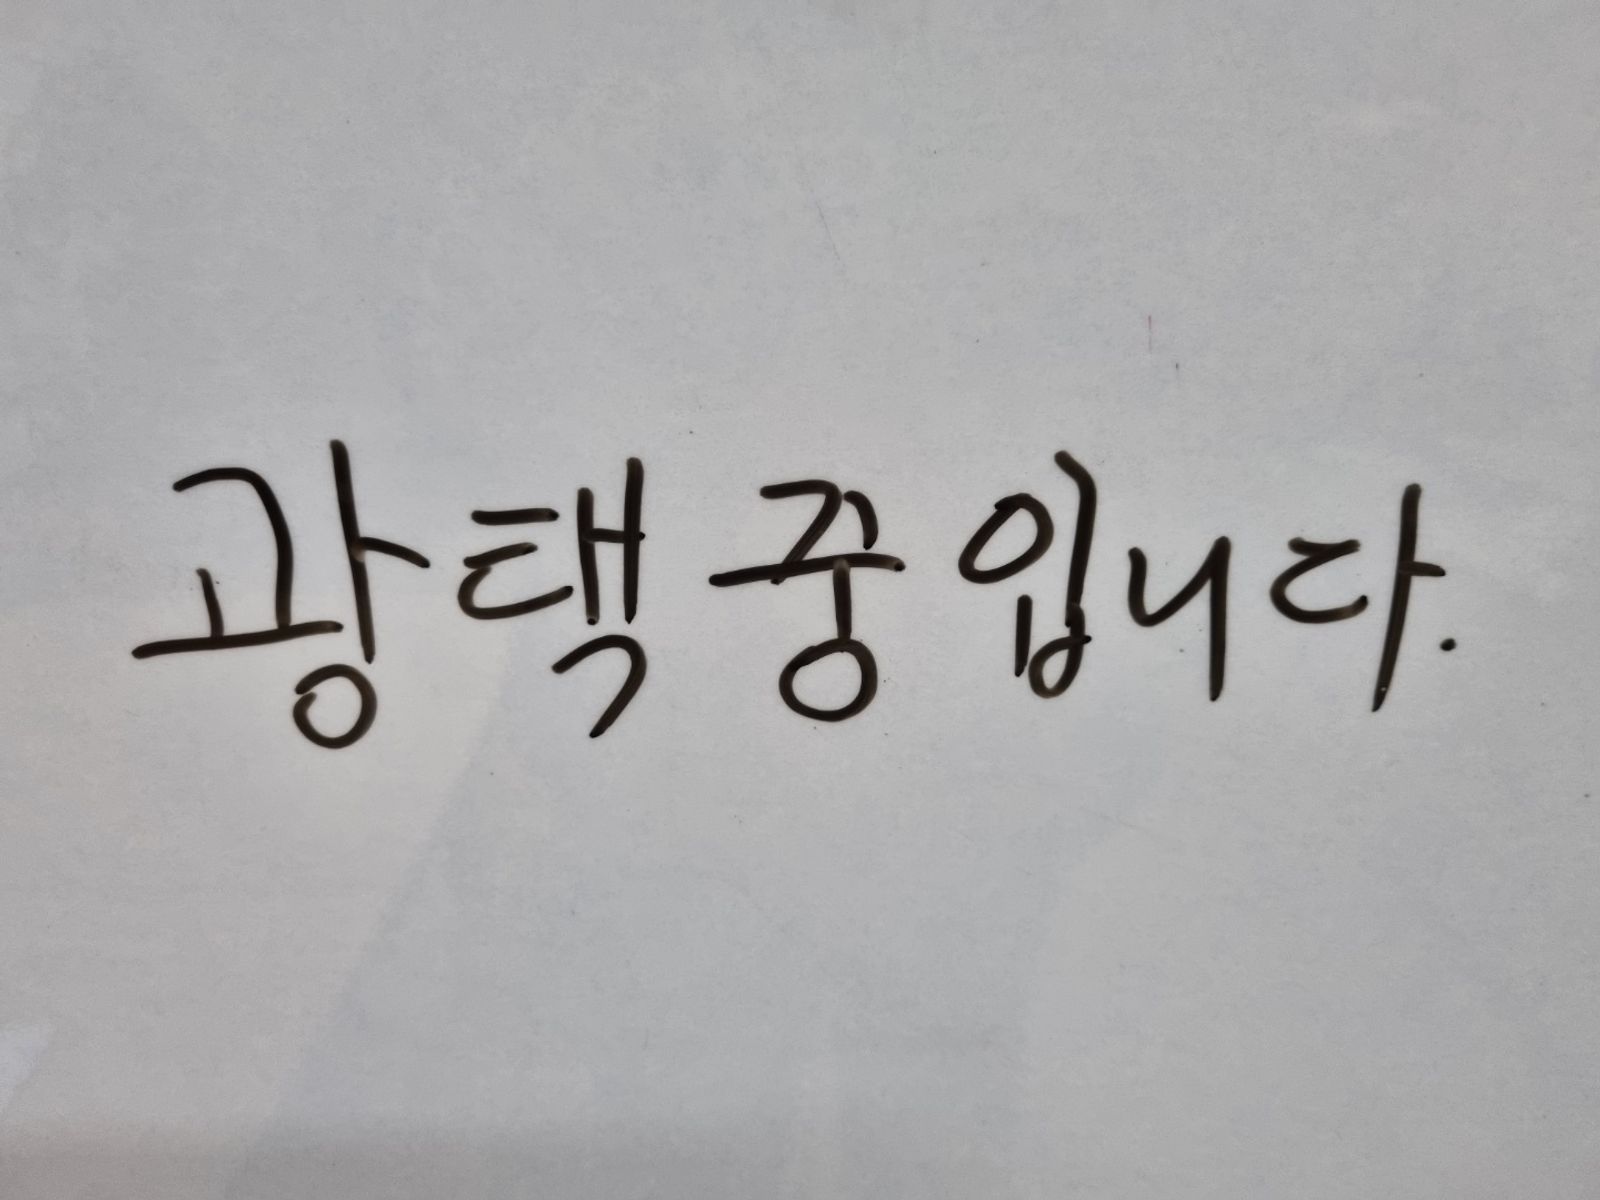 광택 중입니다.